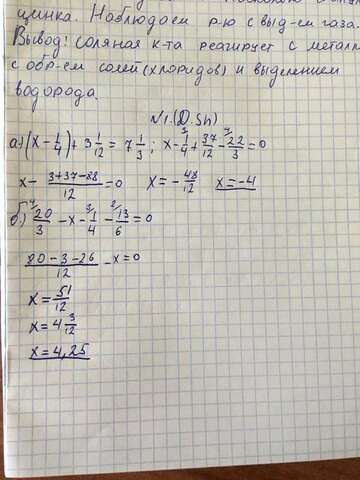 цинка. Наблюдаем р-ю с выд-ем газа.
Вывод: соляная к-та реагирует с металл
с обр-ем солей (хлоридов) и выделением
водорода.
№1. (D.Sh)
а) (x - 1/4) + 3 1/12 = 7 1/3; x - 1/4 + 37/12 - 22/3 = 0
x - 3+37-88/12 = 0 x = - 48/12 x = -4
б) 20/3 - x - 1/4 - 13/6 = 0
80 - 3 - 26/12 - x = 0
x = 51/12
x = 4 3/12
x = 4,25